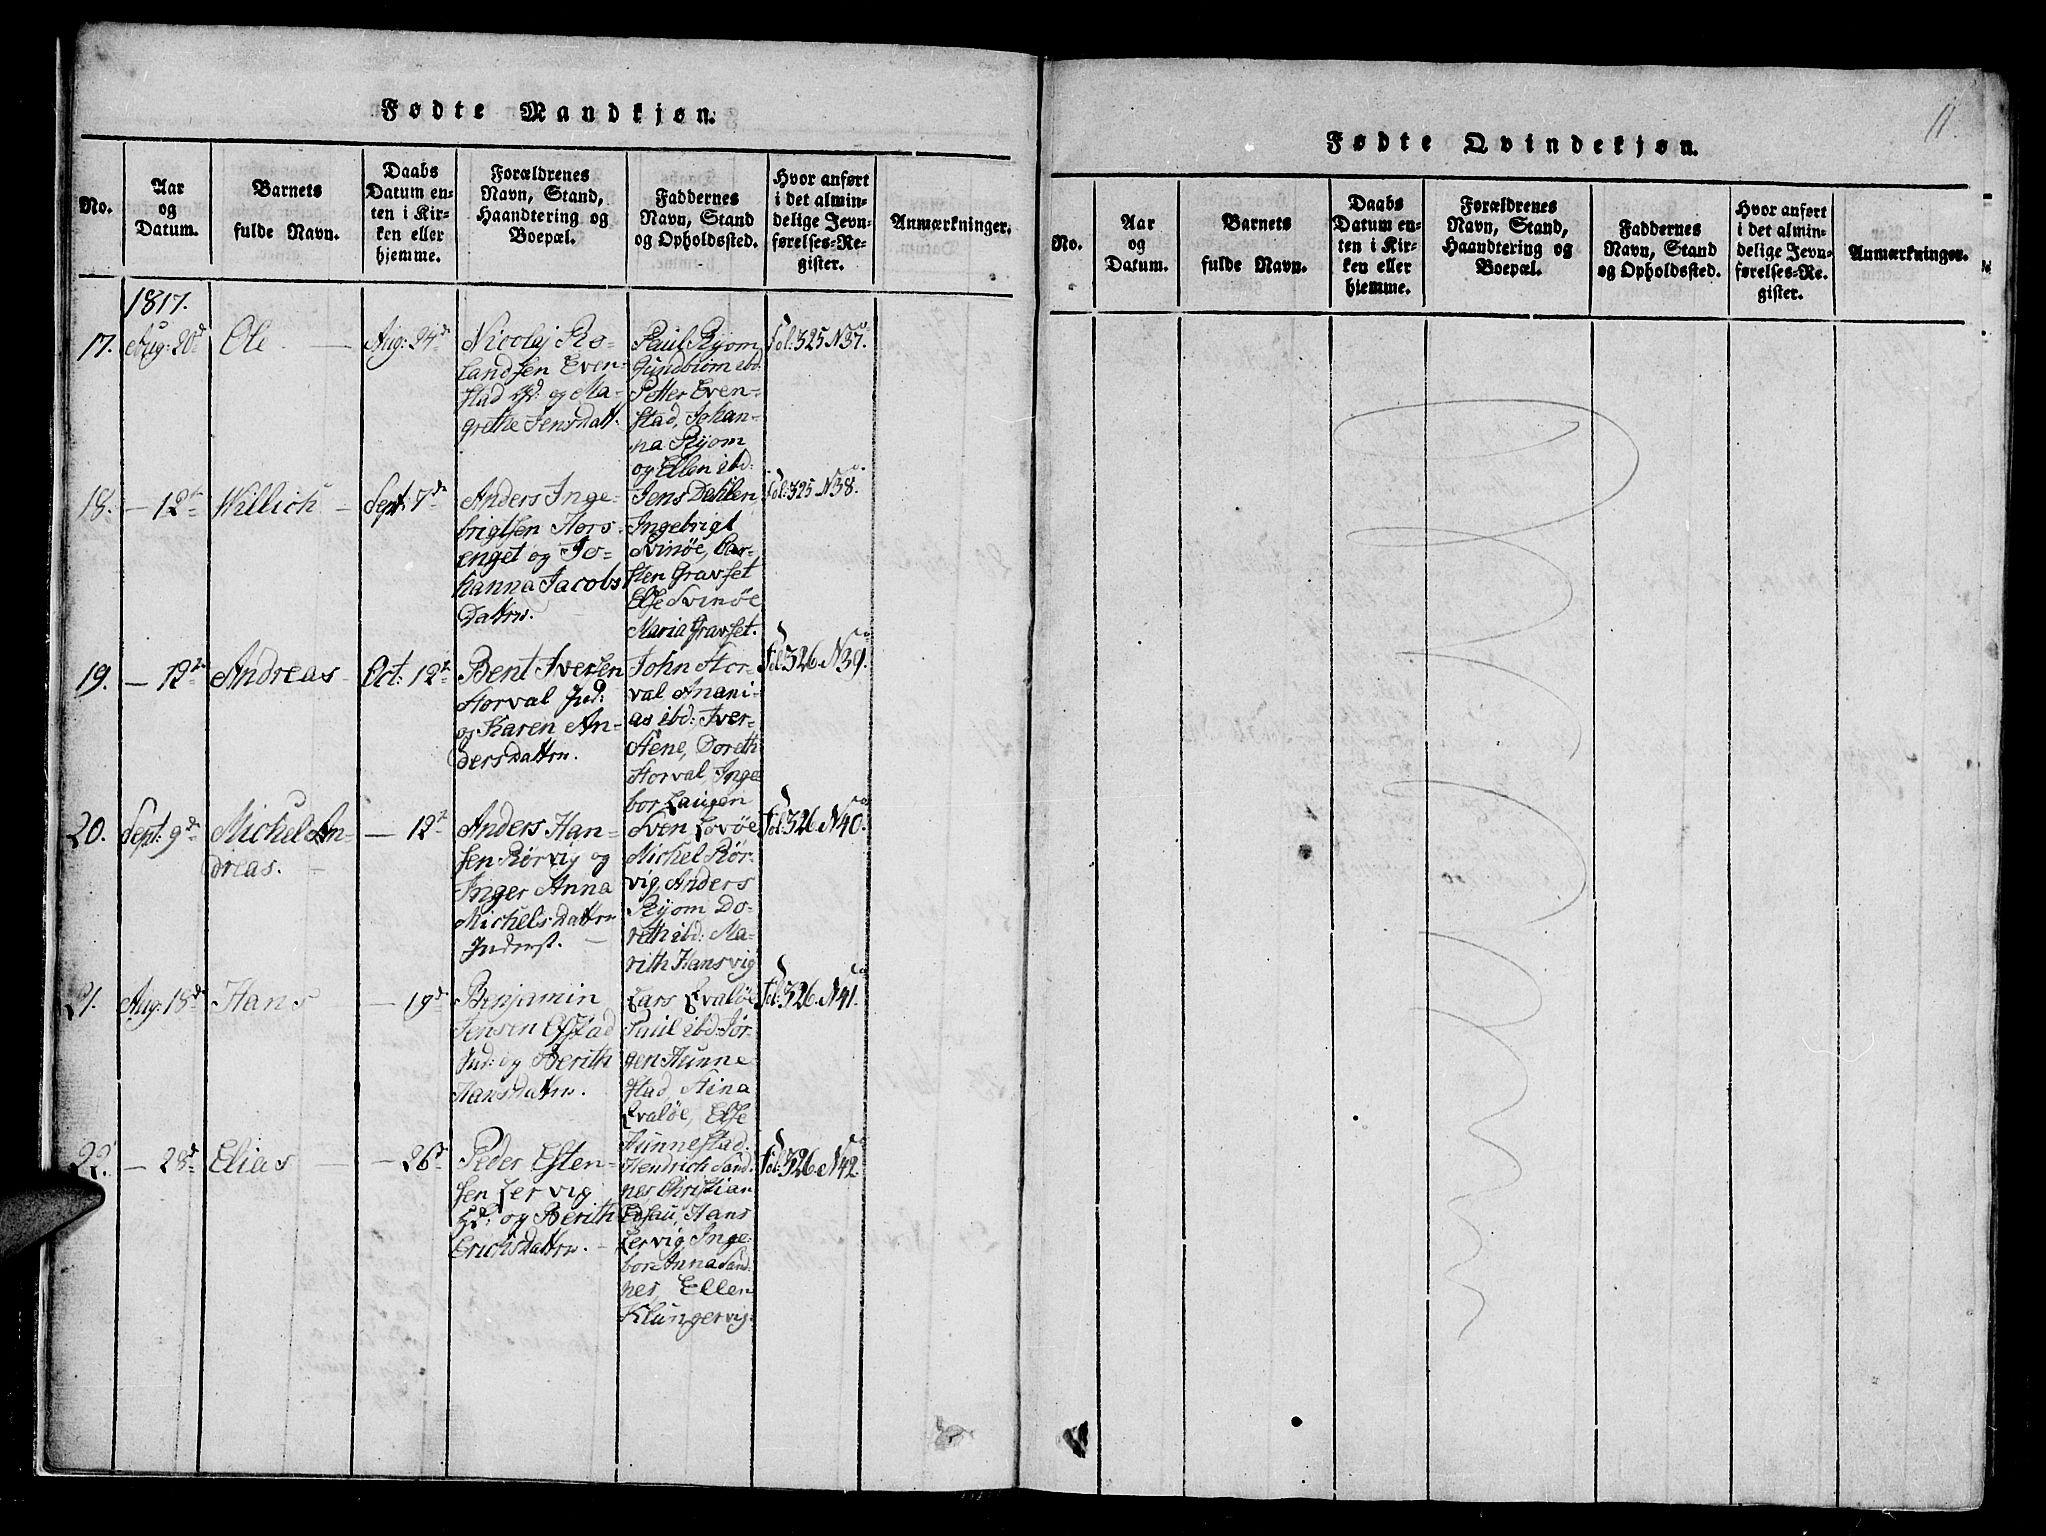 Fødte Mandkjøn.
No.
Aar
og
Datum.
Barnets
fulde Navn.
Daabs
Datum en-
ten i Kir-
ken eller
hjemme.
Forældrenes
Navn, Stand,
Haandtering og
Boepæl.
Faddernes
Navn, Stand
og Opholdssted.
Hvor anført
i det almin-
delige Jevn-
førelses-Re-
gister.
Anmærkninger.
1817.
17.
Aug: 20d
Ole
Aug: 24d
Nicolaj Ro-
landsen Even-
stad og Ma-
grethe Jensdatt.
Paul Ryom
Gundbiom ibd
Petter Even-
stad, Johan-
na Ryom
og Ellen ibd:
Fol: 325 N37.
18.
— 12t
Willich —
Sept: 7d
Anders Inge-
brigtsen Hors-
enget og Jo-
hanna Jacobs
Dattrn.
Jens Dahlen,
Ingebrigt
Svinöe, Car-
sten Gravset
Else Svinöe
Maria Gravset.
Fol: 325 N38.
19.
— 12t
Andreas
Oct: 12t
Bent Iversen
Storval Ind:
og Karen An-
dersdattrn.
John Stor-
val Anani-
as ibd: Iver
Stene, Doreth
Storval, Inge
bor Laugen
Fol: 326. N39.
20.
Sept: 9d
Michel An-
dreas. —
— 12t
Anders Han-
sen Rørvig og
Inger Anna
Michelsdattrn
Inderst. —
Sven Lovöe
Michel Rör-
vig, Anders
Ryom Do-
reth ibd: Ma-
rith Hansvig
Fol: 326. N40.
21.
Aug: 18d
Hans
— 19d
Benjamin
Jensen Opstad
Ind: og Berith
Hansdattrn.
Lars Qvalöe
Paul ibd: Jör-
gen Hunne-
stad, Stina
Qvalöe, Else
Hunnestad.
Fol: 326. N41.
22.
— 28d
Elias
— 26d
Peder Esten-
sen Lervig
og Berith
Erichsdattrn. —
Hendrich Sand-
nes Christian
Edsau, Hans
Lervig, Inge-
bor Anna Sand-
nes, Ellen
Klungervig.
Fol: 326. N42.
11.
Fødte Qvindekjøn.
No.
Aar
og
Datum.
Barnets
fulde Navn.
Daabs
Datum en-
ten i Kir-
ken eller
hjemme.
Forældrenes
Navn, Stand,
Haandtering og
Boepæl.
Faddernes
Navn, Stand
og Opholdssted.
Hvor anført
i det almin-
delige Jevn-
førelses-Re-
gister.
Anmærkninger.